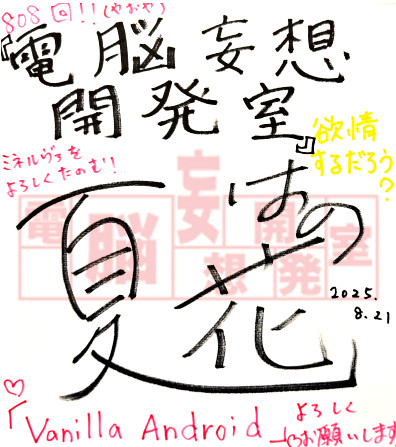 808回!!(やおや)
『電脳妄想
開発室』
欲情
するだろう
?
ミネルヴァを
よろしくたのむ!
はの
夏花
電脳妄想開発室
2025.
8.21
♡
「Vanilla Android」
よろしく
お願いします